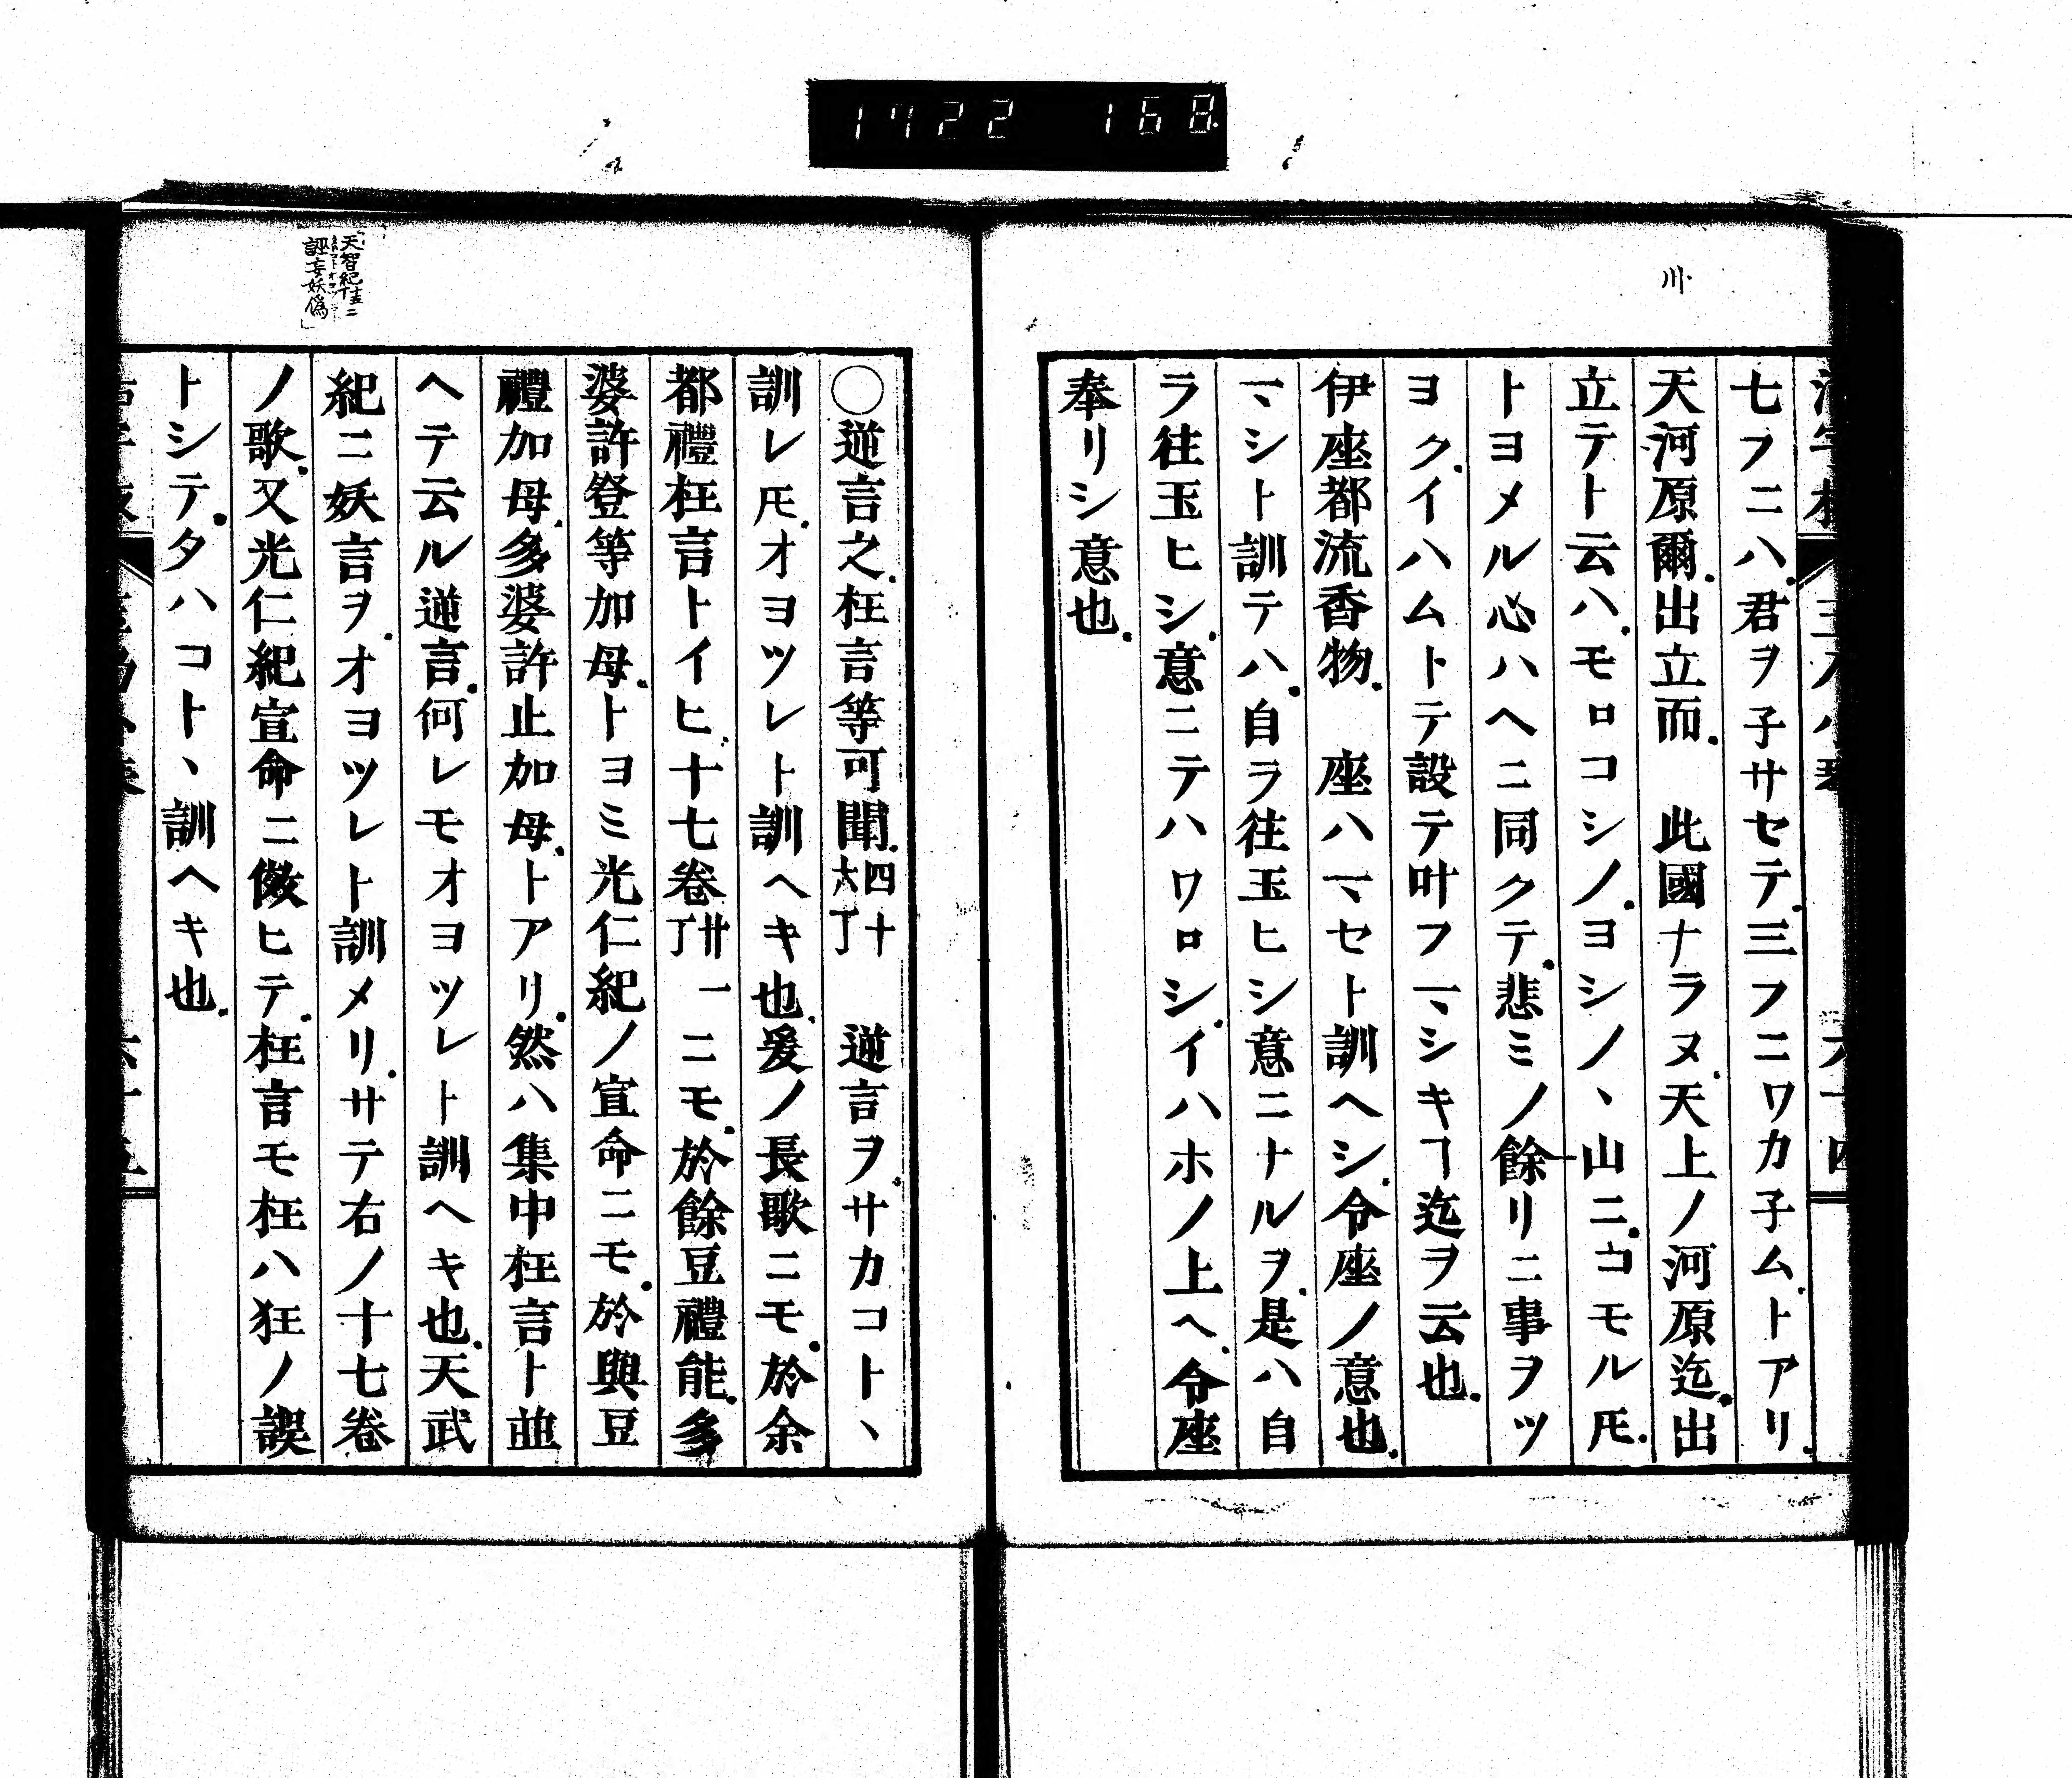 1722 168
七フニハ君ヲ子サセテ三フニワカ子ムトアリ
天河原爾出立而　此國ナラヌ天上ノ河原迄出
立テト云ハモロコシノヨシノヽ山ニコモル𪜈
トヨメル心ハヘニ同クテ悲ミノ餘リニ事ヲツ
ヨクイハムトテ設テ叶フマシキヿ迄ヲ云也
伊座都流香物　座ハマセト訓ヘシ令座ノ意也
マシト訓テハ自ラ往玉ヒシ意ニナルヲ是ハ自
ラ往玉ヒシ意ニテハワロシイハホノ上ヘ令座
奉リシ意也
○逆言之枉言等可聞四十六丁　逆言ヲサカコトヽ
訓レ𪜈オヨツレト訓ヘキ也爰ノ長歌ニモ於余
都禮枉言トイヒ十七卷廿一丁ニモ於餘豆禮能多
婆許登等加母トヨミ光仁紀ノ宣命ニモ於與豆
禮加母多婆許止加母トアリ然ハ集中枉言ト並
ヘテ云ル逆言何レモオヨツレト訓ヘキ也天武
紀ニ妖言ヲオヨツレト訓メリサテ右ノ十七卷
ノ歌又光仁紀宣命ニ傚ヒテ枉言モ枉ハ狂ノ誤
トシテタハコトヽ訓ヘキ也
誣妄妖偽」